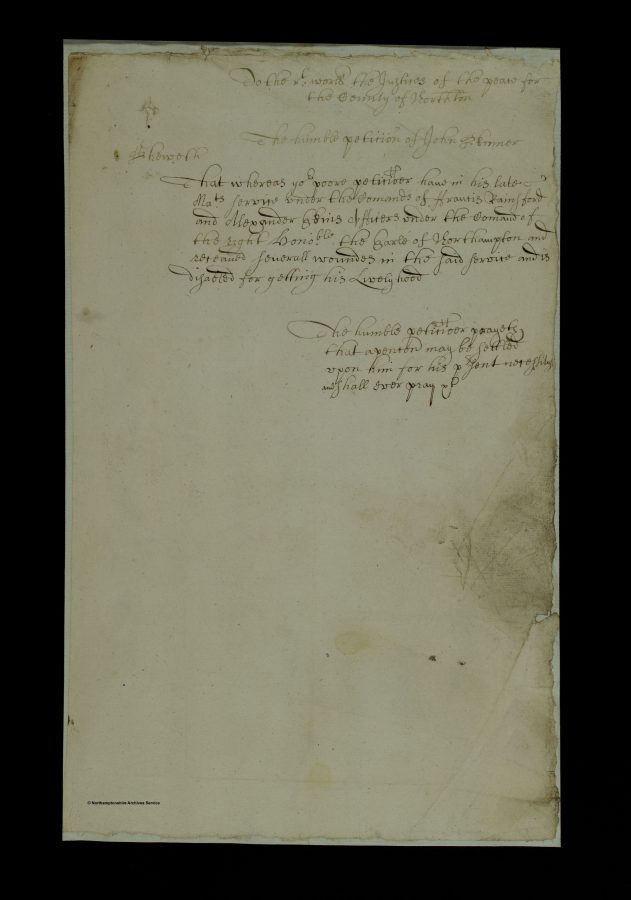 To the rt. worll. the Justices of the peace for
the County of Northton
The humble petition of John Skinner
Sheweth
That whereas yor poore petitioer have in his late
Mats service under the Comands of ffrancis Rainsford
and Allexander officers under the Comand of
the Right Honoble the Earle of Northampton and
receaved severall woundes in the said service and is
disabled for getting his Livelyhood
The humble petitioer prayeth
that a pention may be settled
upon him for his psent necessity
and shall ever pray &c
© Northamptonshire Archives Service